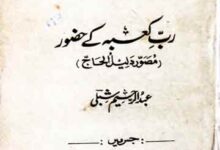 ربِّ کعبہ کے حضور
(مصوّر دلیل الحاج)
عبدالرشیم شبلی
: جس میں :